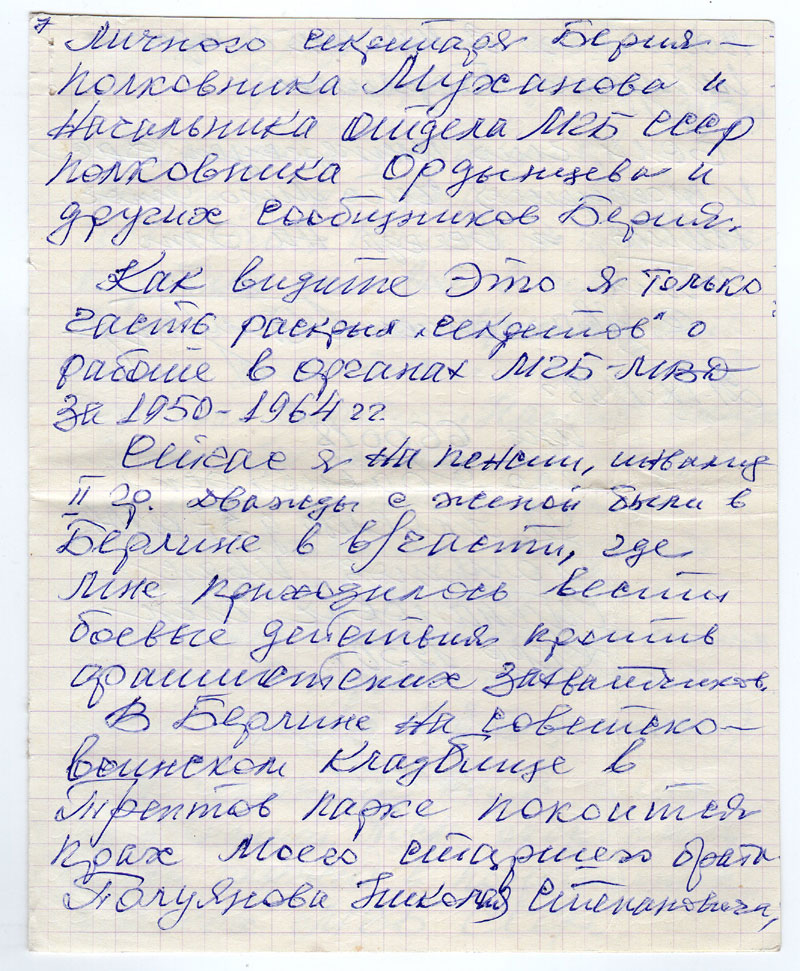 7
личного секретаря Берия –
полковника Муханова и
Начальника отдела МГБ СССР
полковника Ордынцева и
других сообщников Берия.
Как видите это я только
часть раскрыл „секретов" о
работе в органах МГБ-МВД
за 1950-1964 гг.
Сейчас я на пенсии, инвалид
II гр. дважды с женой были в
Берлине в в/части, где
мне приходилось вести
боевые действия против
фашистских захватчиков.
В Берлине на советско–
воинском кладбище в
Трептов парке покоится
прах моего старшего брата
Полуянова Николая Степановича,